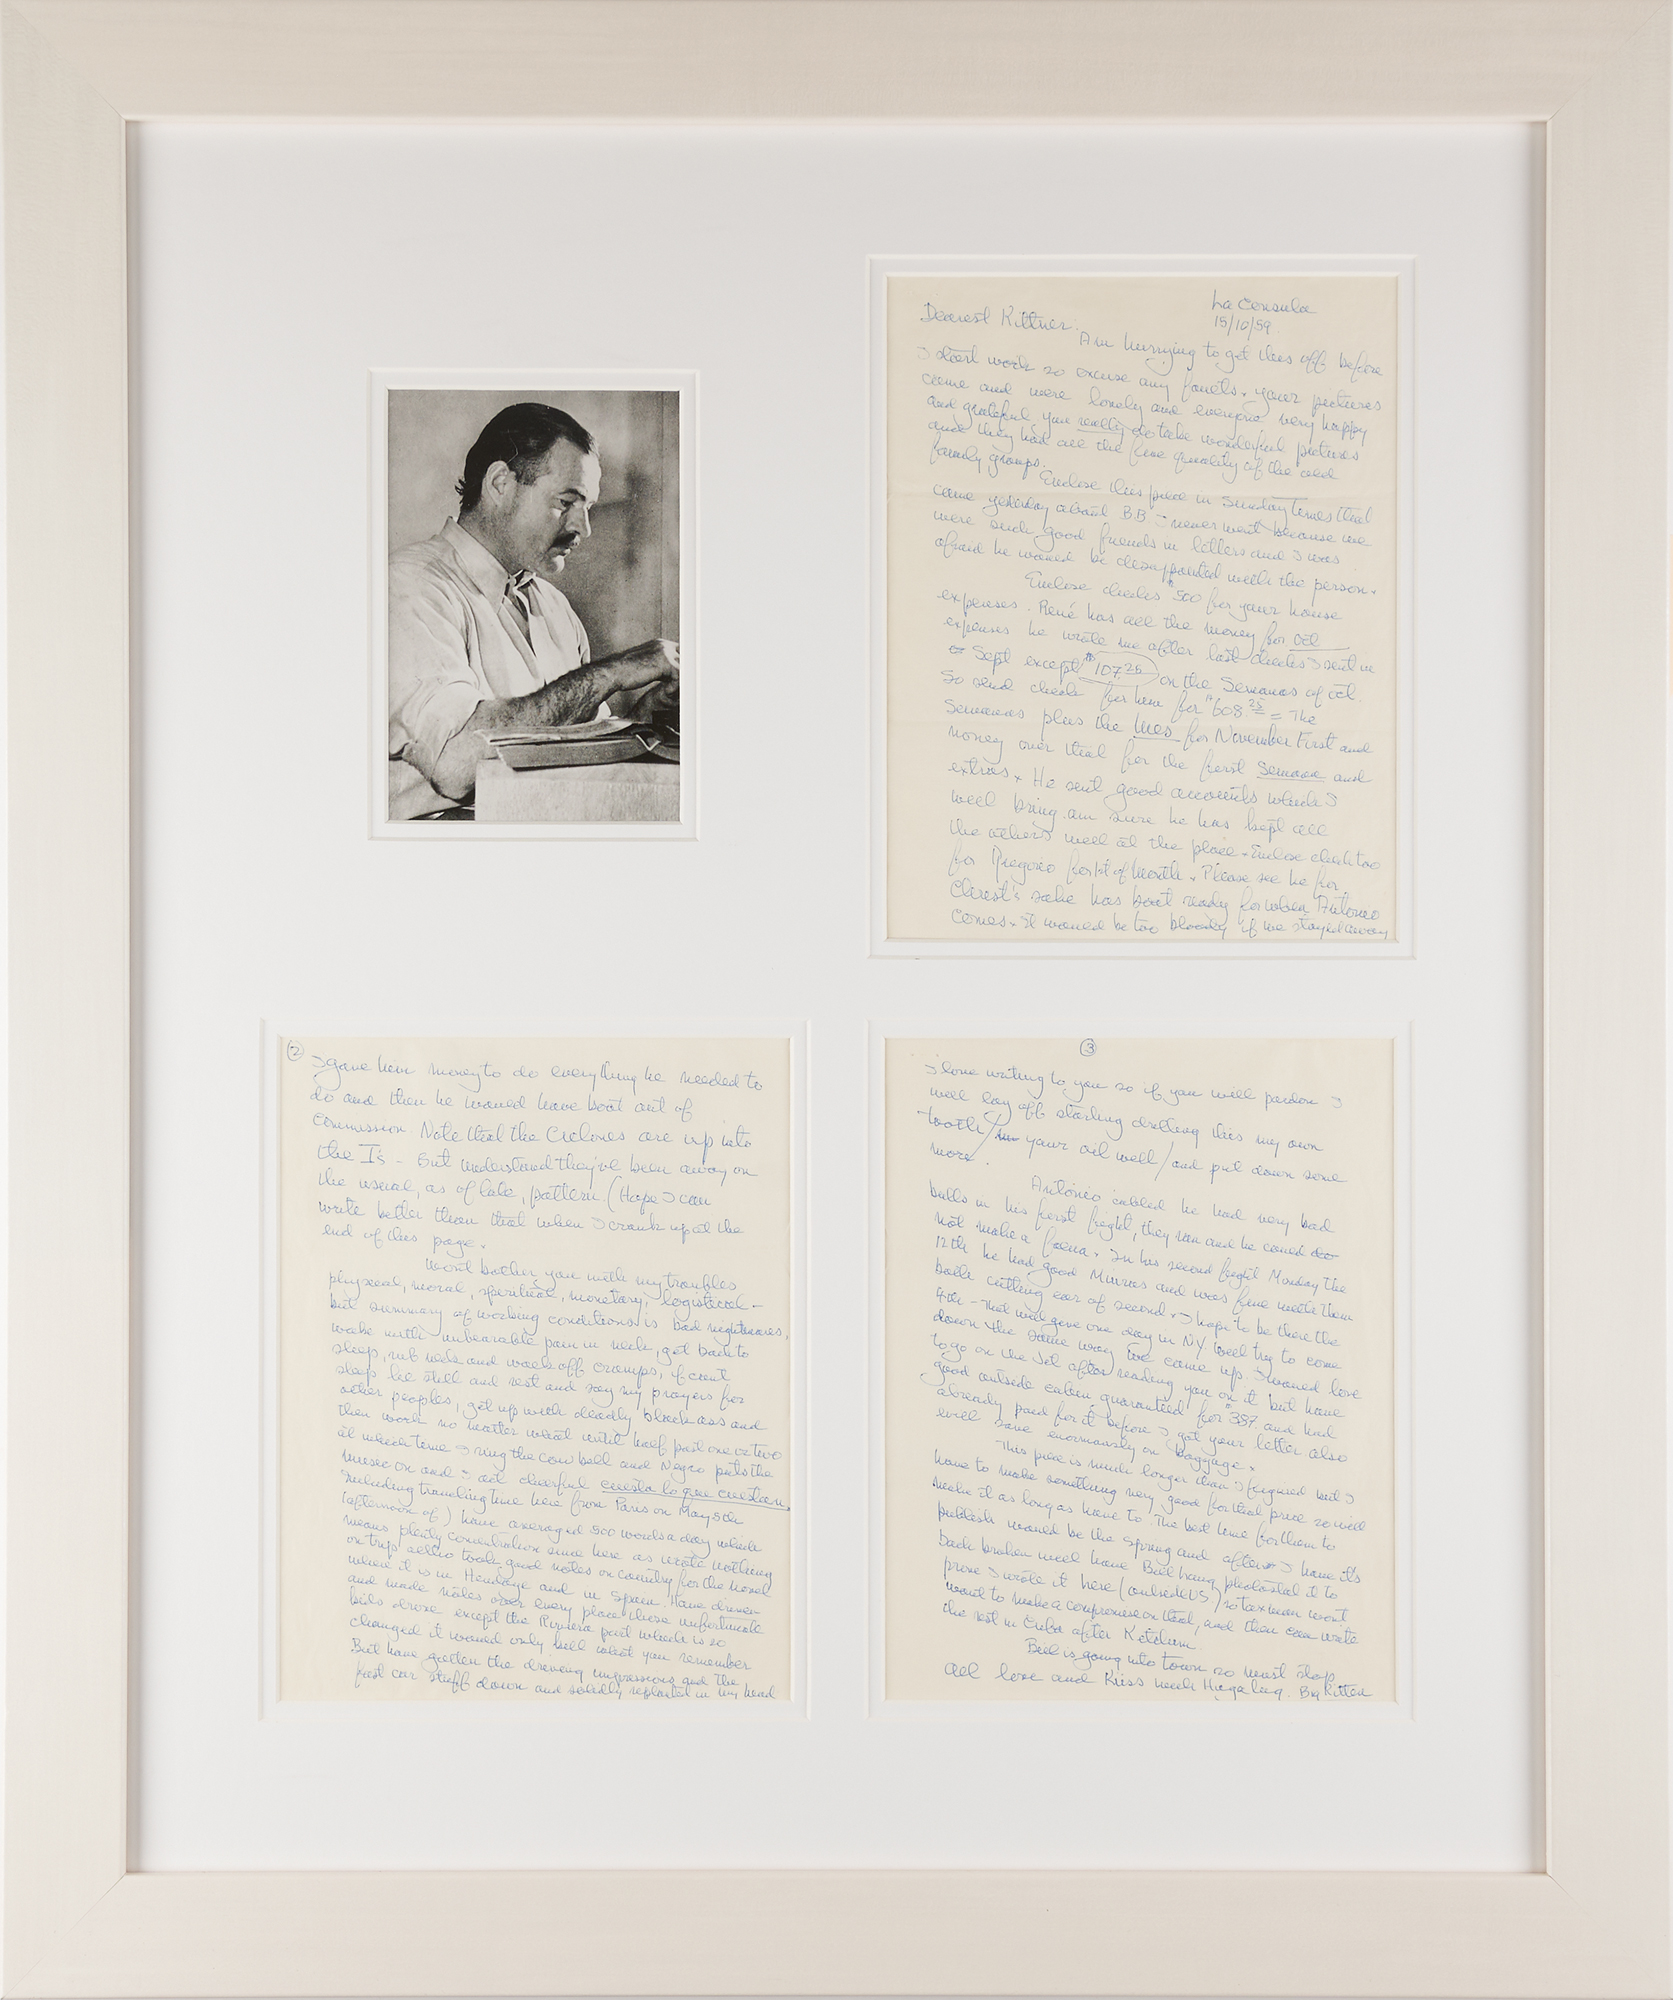 La Consula
15/10/59.
Dearest Kittner:
Am hurrying to get this off before
I start work so excuse any faults. your pictures
came and were lovely and everyone very happy
and grateful. you really do take wonderful pictures
and they had all the fine quality of the old
family groups.
Enclose this piece in Sunday Times that
came yesterday about B.B. I never went because we
were such good friends in letters and I was
afraid he would be disappointed with the person.
Enclose checks $500 for your house
expenses. René has all the money for Oct
expenses he wrote me after last checks I sent in
Sept except $107.25 on the Semanas of Oct.
So send check for him for $608.25 = The
Semanas plus the Mes for November First and
money over that for the first Semana and
extras x He sent good accounts which I
will bring. am sure he has kept all
the others well at the place. Enclose check too
for Gregorio for 1st of month x Please see he for
Christ's sake has boat ready for when Antonio
comes x It would be too bloody if we stayed away
2
I gave him money to do everything he needed to
do and then he would have boat out of
commission. Note that the Ciclones are up into
the I's – But understand they've been away on
the usual, as of late, pattern. (Hope I can
write better than that when I crank up at the
end of this page.
Wont bother you with my troubles
physical, moral, spiritual, monetary, logistical –
but summary of working conditions is bad nightmares,
wake with unbearable pain in neck, get back to
sleep, rub neck and walk off cramps, if cant
sleep lie still and rest and say my prayers for
other peoples, get up with deadly black ass and
then work no matter what until half past one or two
at which time I ring the cow bell and Negro puts the
music on and I act cheerful cuesta lo que cuesta
Including traveling time here from Paris on May 5th
(afternoon of) have averaged 500 words a day which
means plenty concentration since here as wrote nothing
on trip altho took good notes on country for the novel
where it is in Hendaye and in Spain. Have driven
and made notes over every place those unfortunate
kids drove except the Riviera part which is so
changed it would only kill what you remember
But have gotten the driving impressions and the
fast car stuff down and solidly replanted in my head
3
I love writing to you so if you will pardon I
will lay off starting drilling this my own
tooth / your oil well / and put down some
more.
Antonio cabled he had very bad
bulls in his first fight, they ran and he could
not make a faena x In his second fight Monday the
12th he had good Miuras and was fine with them
both cutting ear of second x I hope to be there the
4th – That will give one day in NY. Will try to come
down the same way we came up. I would love
to go on the Jet after reading you on it but have
good outside cabin guaranteed for $387 and had
already paid for it before I got your letter also
will save enormously on baggage x
This piece is much longer than I figured but I
have to make something very good for that price so will
make it as long as have to. The best time for them to
publish would be the spring and after I have it's
back broken will have Bill hang photostat it to
prove I wrote it here (outside US) so tax man wont
want to make a compromise on that, and then can write
the rest in Cuba after Ketchum.
Bill is going into town so must stop
All love and Kiss much Big Kitten